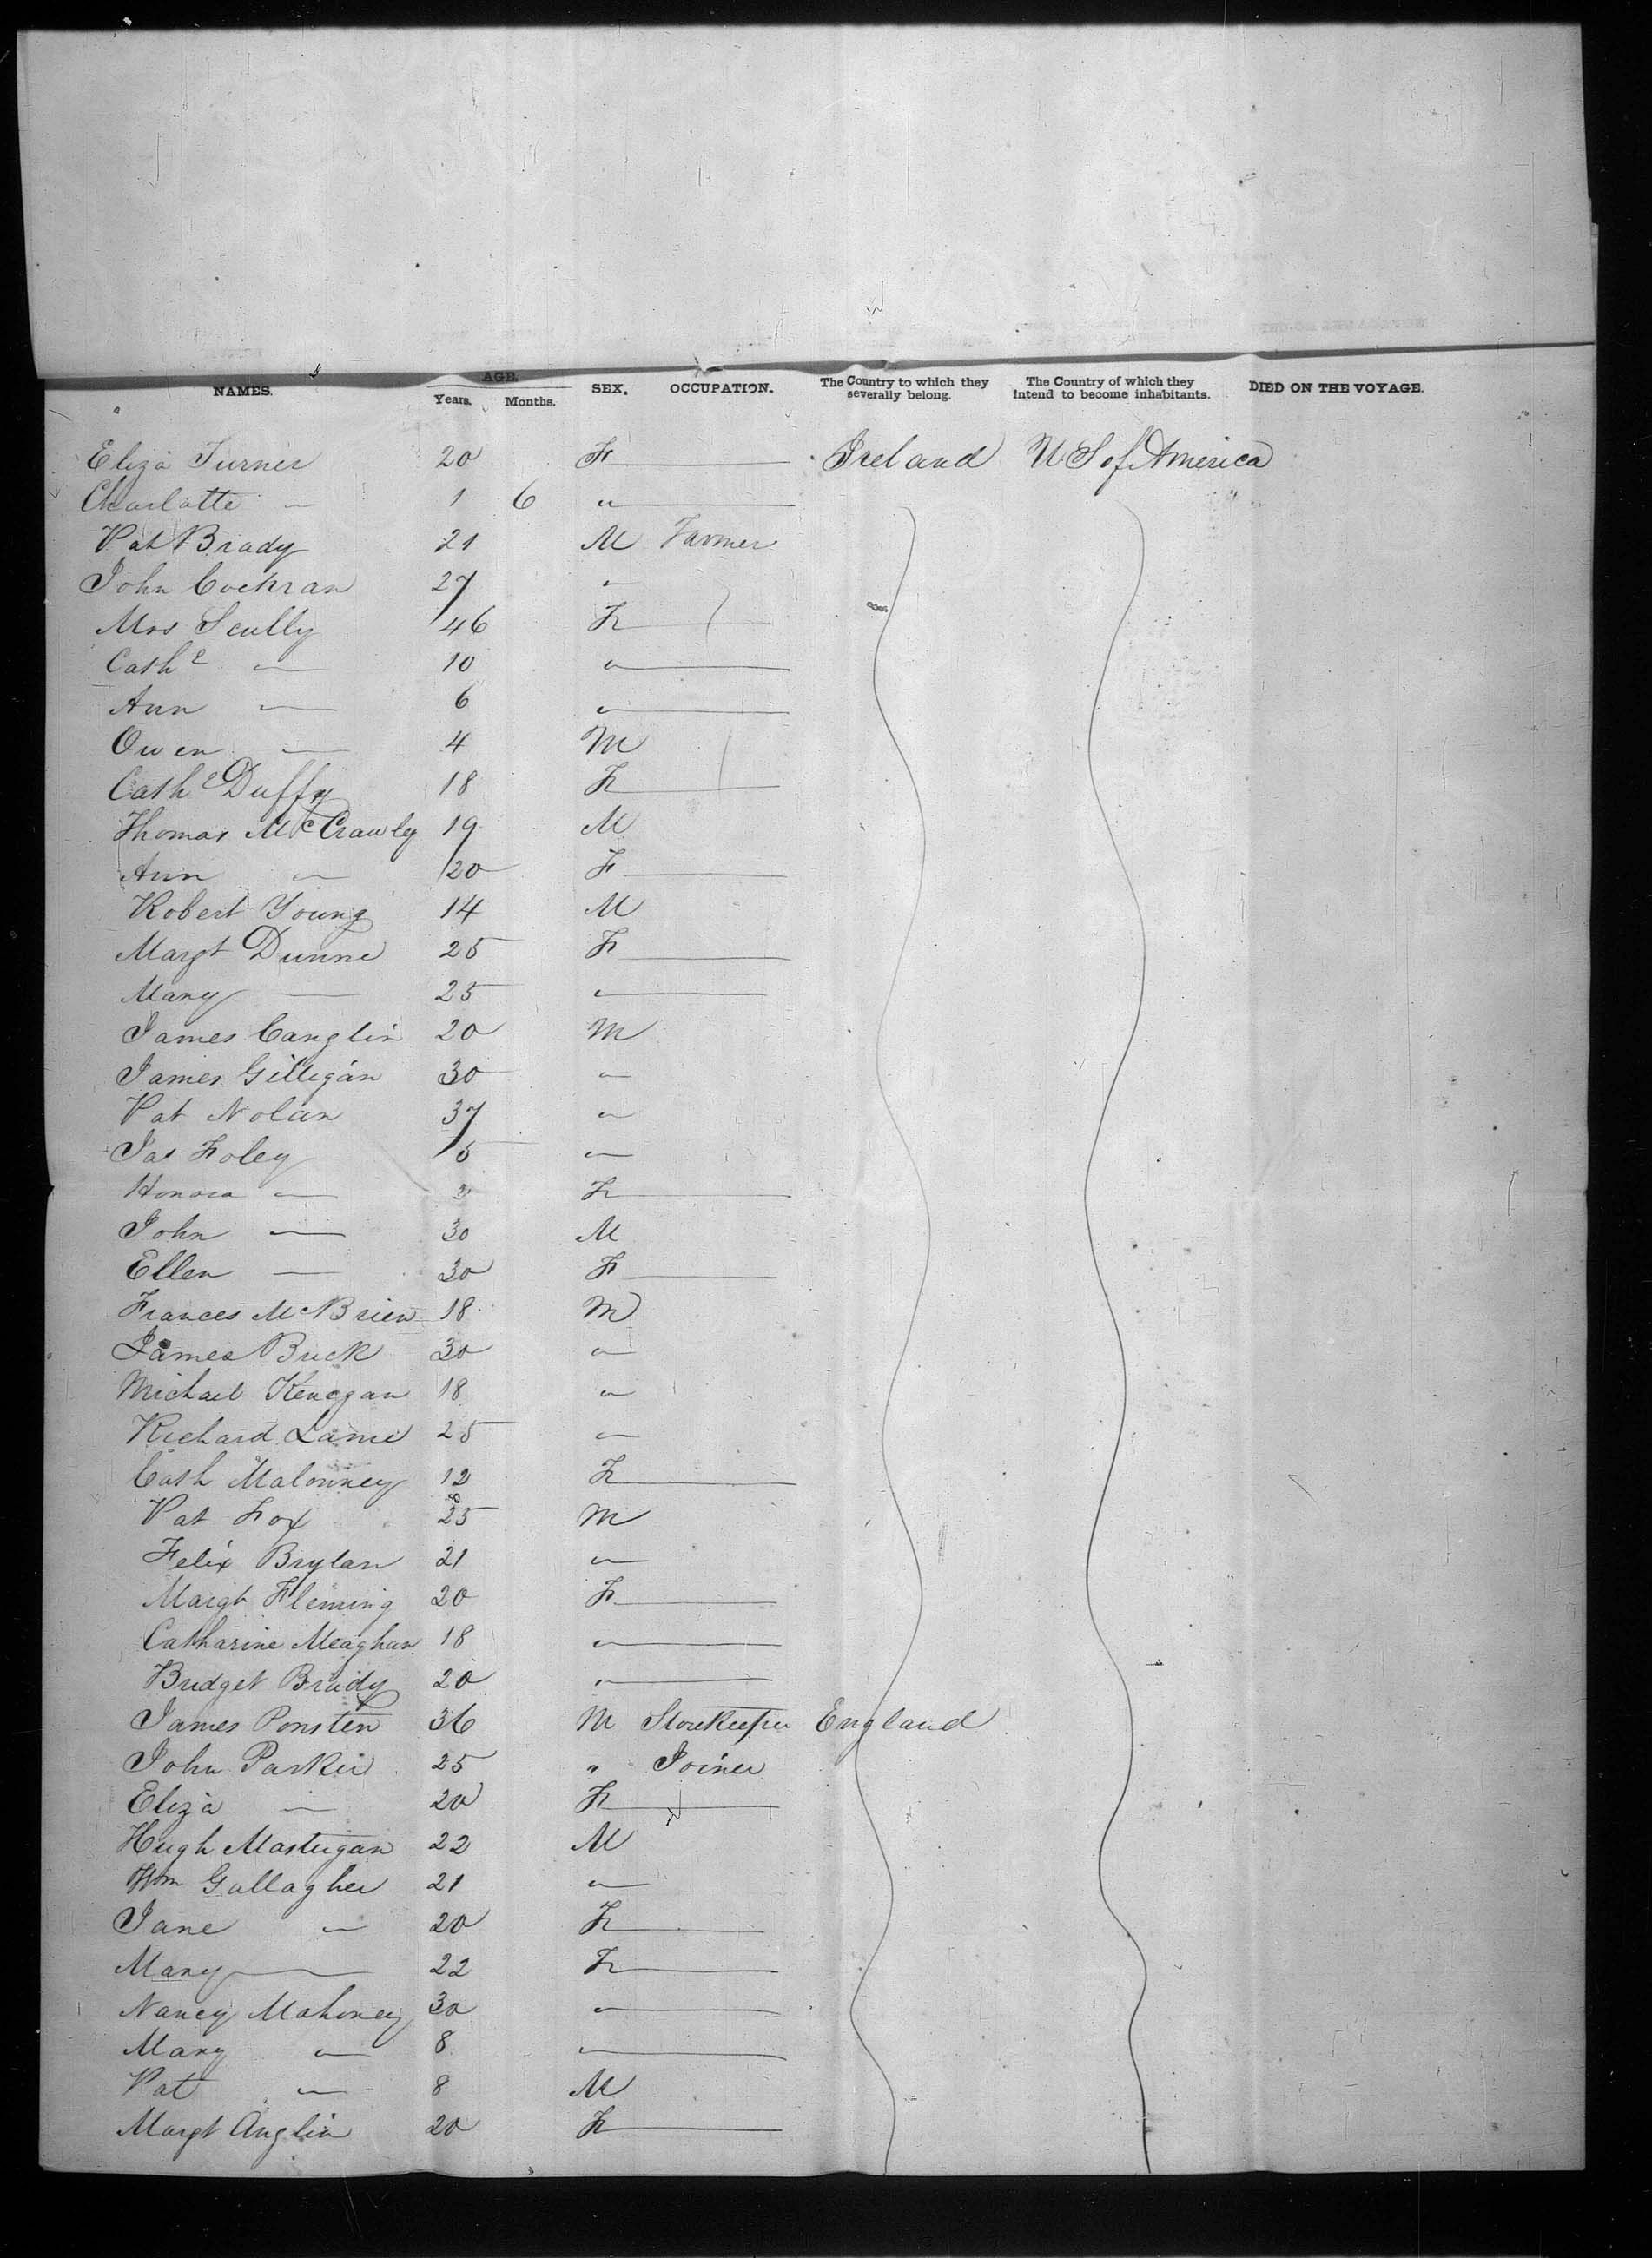 NAMES. AGE. Years. Months. SEX. OCCUPATION. The Country to which they severally belong. The Country of which they intend to become inhabitants. DIED ON THE VOYAGE.
Eliza Turner 20 F — Ireland U S of America
Charlotte — 1 6 " —
Pat Brady 21 M Farmer
John Cochran 27 "
Mrs Scully 46 F —
Cathe — 10 " —
Ann — 6 " —
Owen — 4 M
Cathe Duffy 18 F —
Thomas McCrawley 19 M
Ann " 20 F —
Robert Young 14 M
Margt Dunne 25 F —
Mary — 25 " —
James Canglin 20 M
James Gilligan 30 "
Pat Nolan 37 "
Jas Foley 5 "
Honora — F —
John — 30 M
Ellen — 30 F —
Frances McBrien 18 M
James Buck 30 "
Michael Kenegan 18 "
Richard Lame 25 "
Cath Malonney 12 F —
Pat Fox 25 M
Felix Brylan 21 "
Margt Fleming 20 F —
Catharine Meaghan 18 " —
Bridget Brady 20 " —
James Ponsten 36 M Storekeeper England
John Parker 25 " Joiner
Eliza — 20 F —
Hugh Mastergan 22 M
Wm Gallagher 21 "
Jane " 20 F —
Mary — 22 F —
Nancy Mahoney 30 " —
Mary " 8 " —
Pat " 8 M
Margt Anglin 20 F —